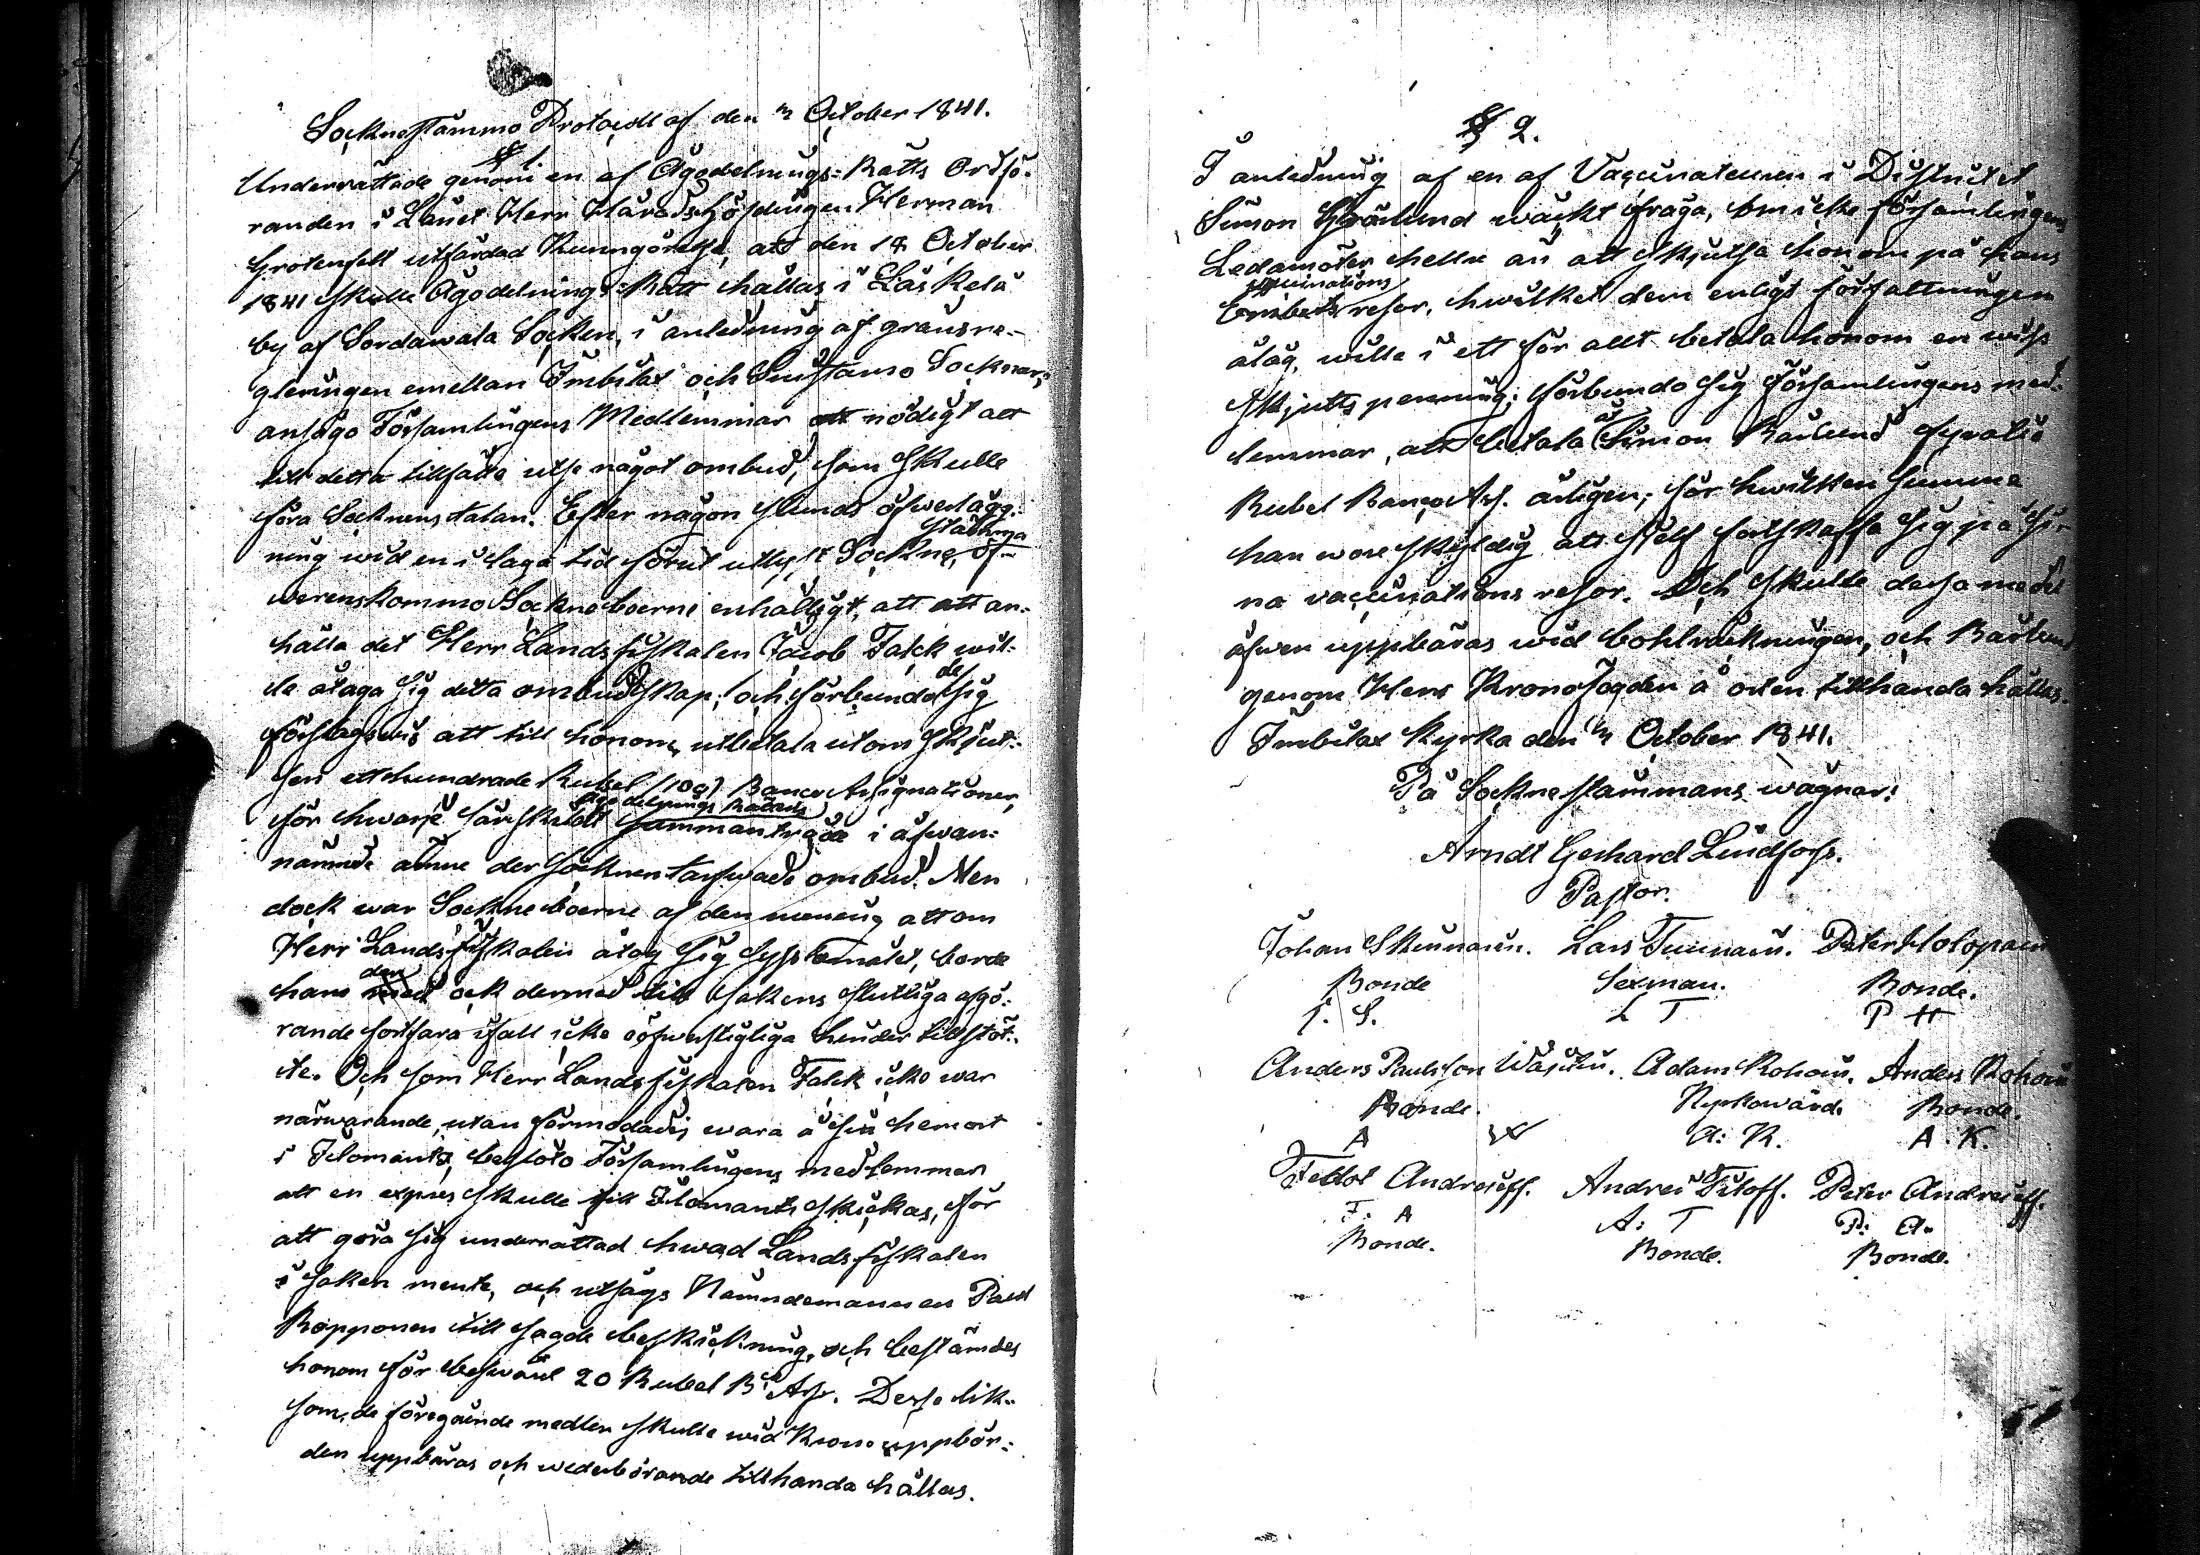 Sockne Stämmo Protocoll af den October 1841.
§ 1.
Underrättade genom en af Ägodelnings-Rätts Ordfö-
randen i Länet Herr Häradshöfdingen Herman
Grotenfelt utfärdad Kunngörelse, att den 18 October
1841 skulle Ägodelnings-Rätt hållas i Läskelä
by af Sordawala Socken, i anledning af gränsre-
gleringen emellan Imbilax och Suistamo Socknar;
ansågo Församlingens Medlemmar nödigt att
till detta tillfälle utse något ombud, som skulle
föra Socknens talan. Efter någon stunds öfwerlägg-
ning wid en i laga tid förut utlyst Sockne stämma öf-
werenskommo Sockneboerne enhälligt, att att an-
hålla det Herr Landsfiskalen Jacob Falck wil-
le åtaga sig detta ombudskap, och förbundo de sig
förslagswis att till honom utbetala utom skjut-
sen etthundrade Rubel (100) Banco Assignationer,
för hwarje särskildt Ägodelnings Rättens sammanträde i ofwan-
nämnde ämne der Socknen tarfwade ombud. Men
dock war Sockneboerne af den mening att om
Herr Landsfiskalen åtog sig Sysslomålet, borde
han den ock dermed till sakens slutliga afgö-
rande fortfara ifall icke oöfwerstigliga hinder tillstöt-
te. Och som Herr Landsfiskalen Falck icke war
närwarande, utan förmodades wara å sin hemort
i Ilomants, beslöto Församlingens medlemmar
att en expres skulle till Ilomants skickas, för
att göra sig underrättad hwad Landsfiskalen
i saken mente, och utsågs Nämndemannen Paul
Ropponen till sagde beskickning, och bestämdes
honom för beswäret 20 Rubel Bco Ass. Desse lik-
som de föregående medlen skulle wid Kronouppbör-
den uppbäras och wederbörande tillhanda hållas.
§ 2.
I anledning af en af Vaccinateuren i Districtet
Simon Bärlund wäckt fråga, om icke församlingens
Ledamöter hellre än att skjutsa honom på hans
vaccinations
Embets resor, hwilket dem enligt författningen
ålåg, wille i ett för allt betala honom en wiss
skjutspenning; förbundo sig Församlingens med-
lemmar, att betala åt Simon Bärlund fyratio
Rubel Banco Ass. årligen; för hwilken summa
han wore skyldig att sjelf fortskaffa sig på si-
na vaccinations resor. Och skulle dessa medel
äfwen uppbäras wid bohlräkningen, och Bärlund
genom Herr Kronofogden å orten tillhanda hållas.
Imbilax Kyrka den October 1841.
På Socknestämmans wägnar:
Arndt Gerhard Lindfors.
Pastor.
Johan Skinnarin. Lars Turunain. Peter Holopain
Bonde Sexman. Bonde.
J. S. L T P H
Anders Paulsson Wäskin. Adam Kohoin. Anders Kohoin
Bonde. Kyrkowärd. Bonde.
A W A: K. A. K.
Feddot Andreieff. Andrei Titoff. Peter Andreieff.
F: A A: T P: A.
Bonde. Bonde. Bonde.